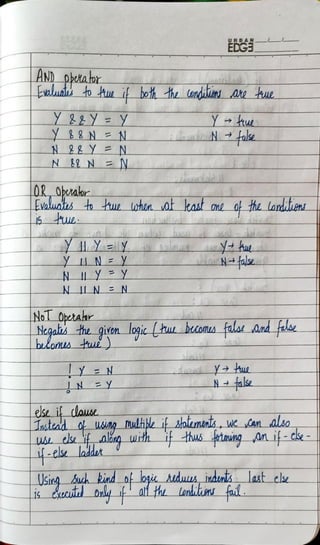 URBAN
EDGE
AND operator
Evaluates to true if both the conditions are true
Y && Y = Y Y → true
Y && N = N N → false
N && Y = N
N && N = N
OR Operator
Evaluates to true when at least one of the conditions
is true.
Y || Y = Y Y → true
Y || N = Y N → false
N || Y = Y
N || N = N
NOT Operator
Negates the given logic (true becomes false and false
becomes true)
! Y = N Y → true
! N = Y N → false
else if clause
Instead of using multiple if statements, we can also
use else if along with if thus forming an if-else-
if-else ladder
Using such kind of logic reduces indents. last else
is executed only if all the conditions fail.